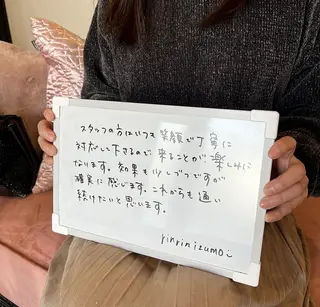 スタッフの方はいつも笑顔で丁寧に
対応して下さるので来ることが楽しみに
なります。効果も少しづつですが
確実に感じます。これからも通い
続けたいと思います。
rinrinizumo